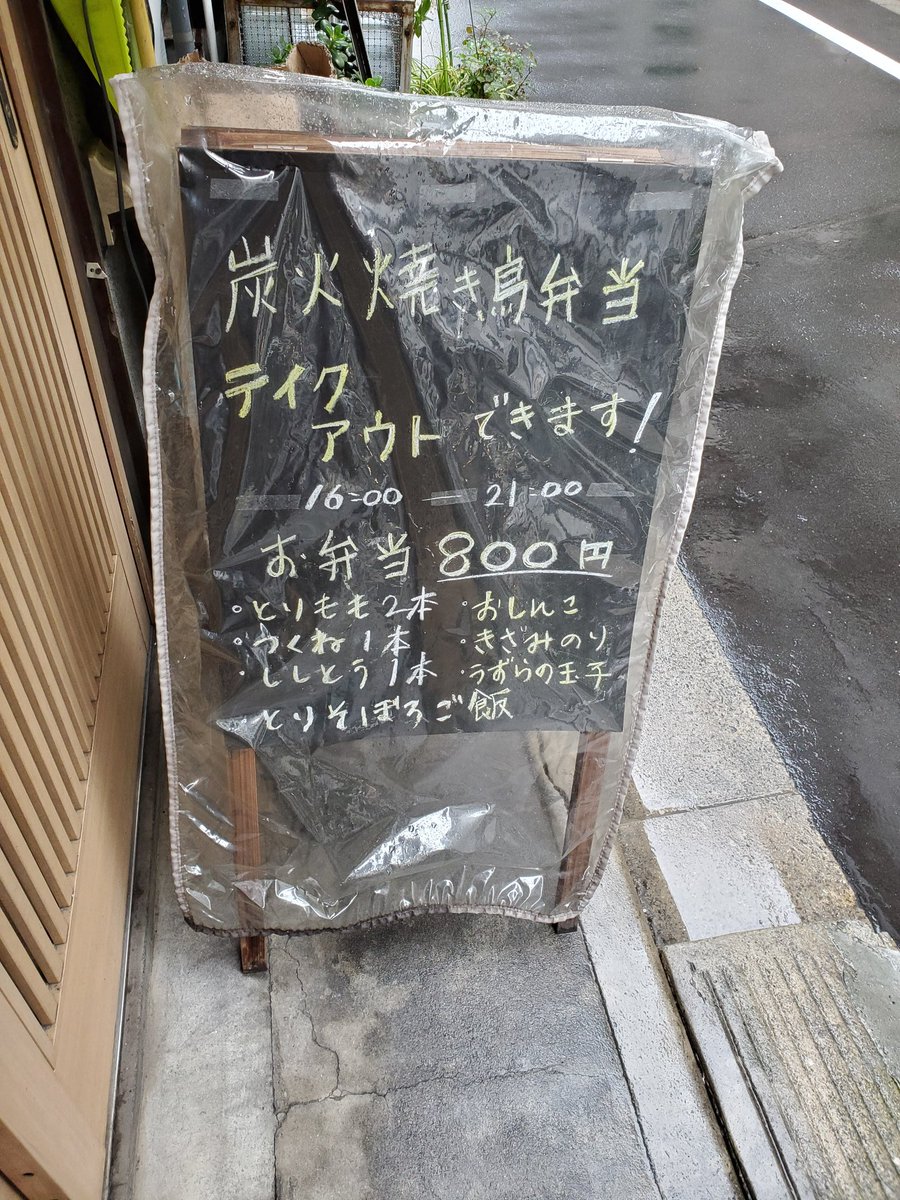 炭火焼き鳥弁当
テイク
アウトできます!
16:00 — 21:00
お弁当 800円
・とりもも2本 ・おしんこ
・つくね1本 ・きざみのり
・ししとう1本 ・うずらの玉子
とりそぼろご飯